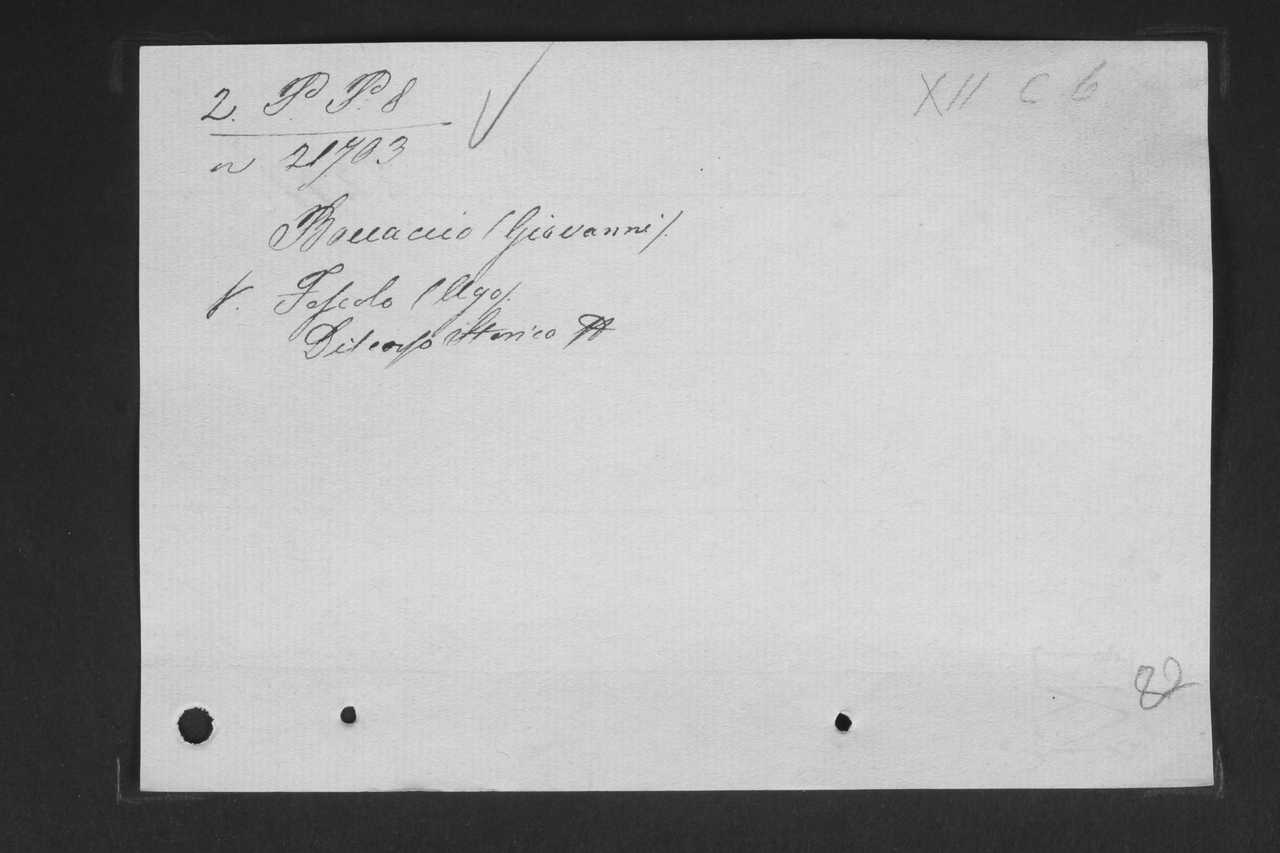 2. P. P. 8
XII C 6
n 21703
Boccaccio (Giovanni).
V. Foscolo (Ugo).
Discorso storico
82